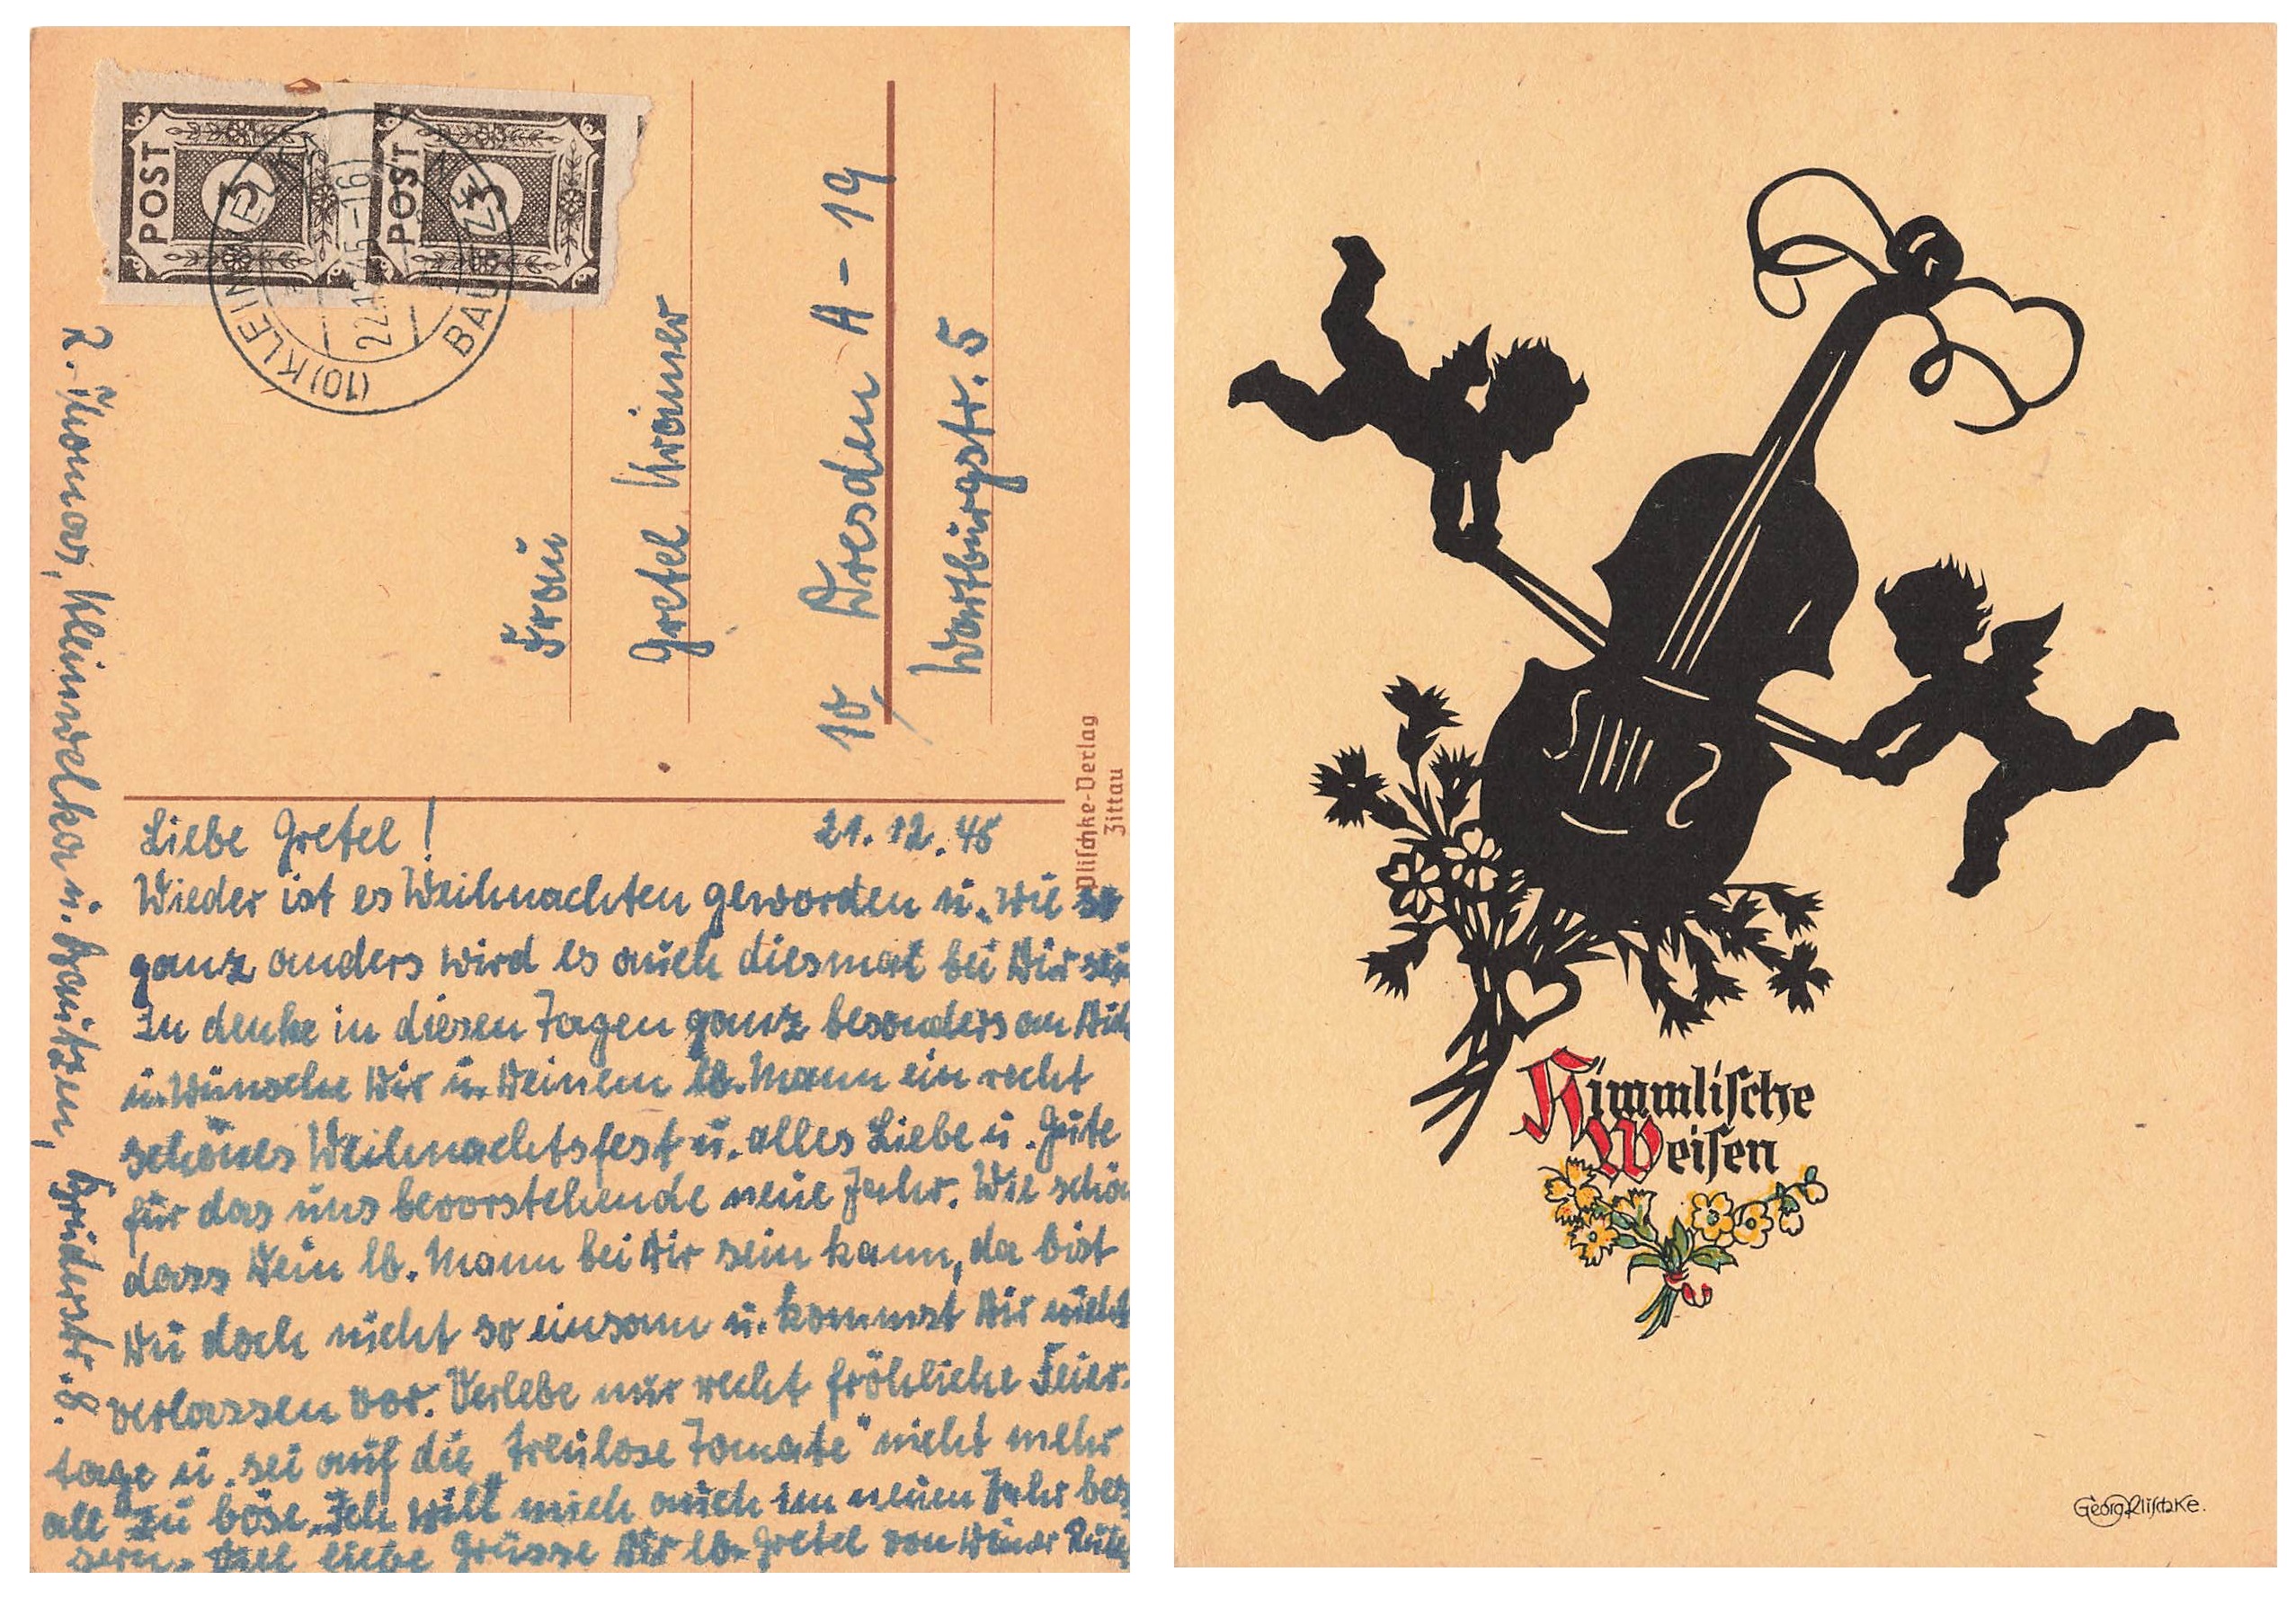 POST
3
POST
3
(10) KLEIN
22.12.45-16
BAU
R. Thomas, Kleinwelka ü. Bautzen, Brüderstr. 8.
Frau
Gretel
10 Dresden A-19
Wartburgstr. 5
Plischke-Verlag
Zittau
Liebe Gretel!
21.12.45
Wieder ist es Weihnachten geworden u. wie so
ganz anders wird es auch diesmal bei Dir sein
denke in diesen Tagen ganz besonders an Dich
u. wünsche Dir u. Deinem lb. Mann ein recht
schönes Weihnachtsfest u. alles Liebe u. Gute
für das uns bevorstehende neue Jahr. Wie schön
dass Dein lb. Mann bei Dir sein kann, da bist
Du doch nicht so einsam u. kommst Dir nicht
verlassen vor. Verlebe nur recht fröhliche Feier-
tage u. sei auf die „treulose Tomate" nicht mehr
all zu böse. Ich will mich auch im neuen Jahr bes
sern. Viel liebe Grüsse Dir lb. Gretel von Deiner
Himmlische
Weisen
Georg Plischke.